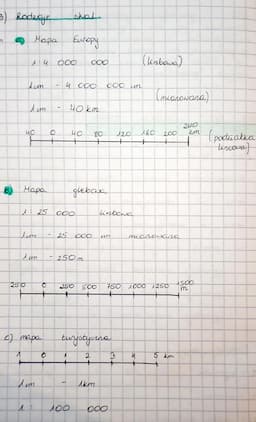 a) Rodzaje skal
a) Mapa Europy
1: 4 000 000 (liczbowa)
1cm - 4 000 000 cm
(mianowana)
1cm - 40 km
40 0 40 80 120 160 200 240 km (podziałka liniowa)
b) Mapa glebowa
1: 25 000 liczbowa
1cm - 25 000 cm mianowana
1cm - 250m
250 0 250 500 750 1000 1250 1500 m
c) mapa turystyczna
1 0 1 2 3 4 5 km
1cm - 1km
1: 100 000